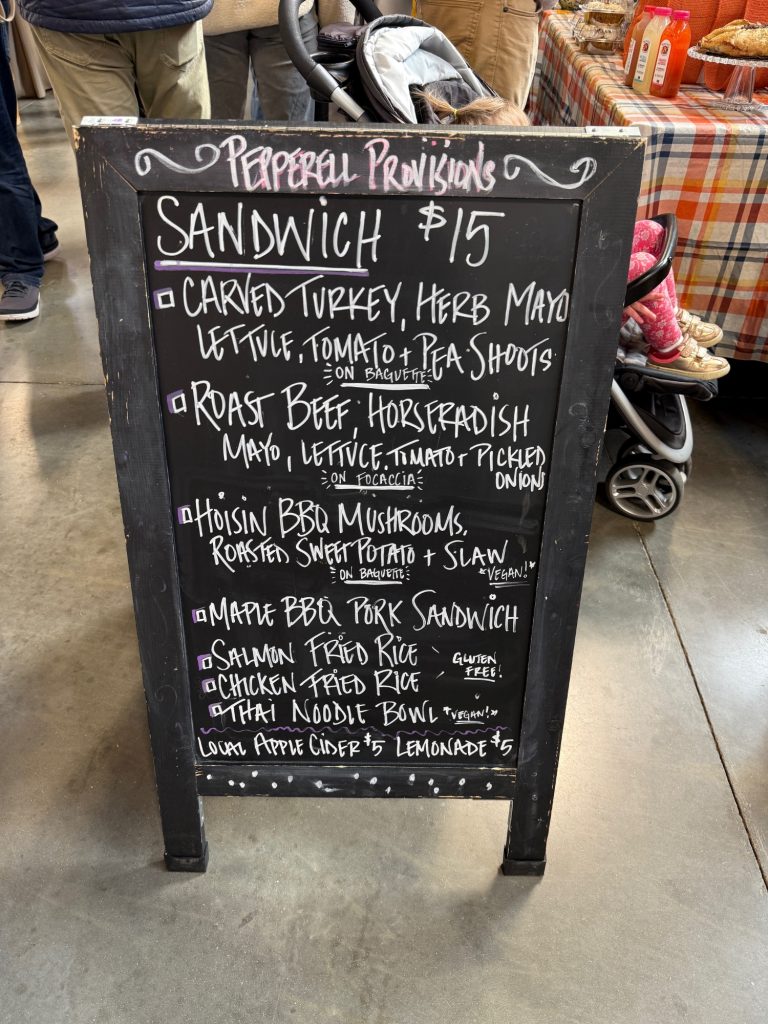 Pepperell Provisions
Sandwich $15
Carved Turkey, Herb Mayo
Lettuce, Tomato + Pea Shoots
on Baguette
Roast Beef, Horseradish
Mayo, Lettuce, Tomato + Pickled
Onions
on Focaccia
Hoisin BBQ Mushrooms,
Roasted Sweet Potato + Slaw
*Vegan!*
on Baguette
Maple BBQ Pork Sandwich
Salmon Fried Rice
Gluten
Free!
Chicken Fried Rice
Thai Noodle Bowl *Vegan!*
Local Apple Cider $5 Lemonade $5